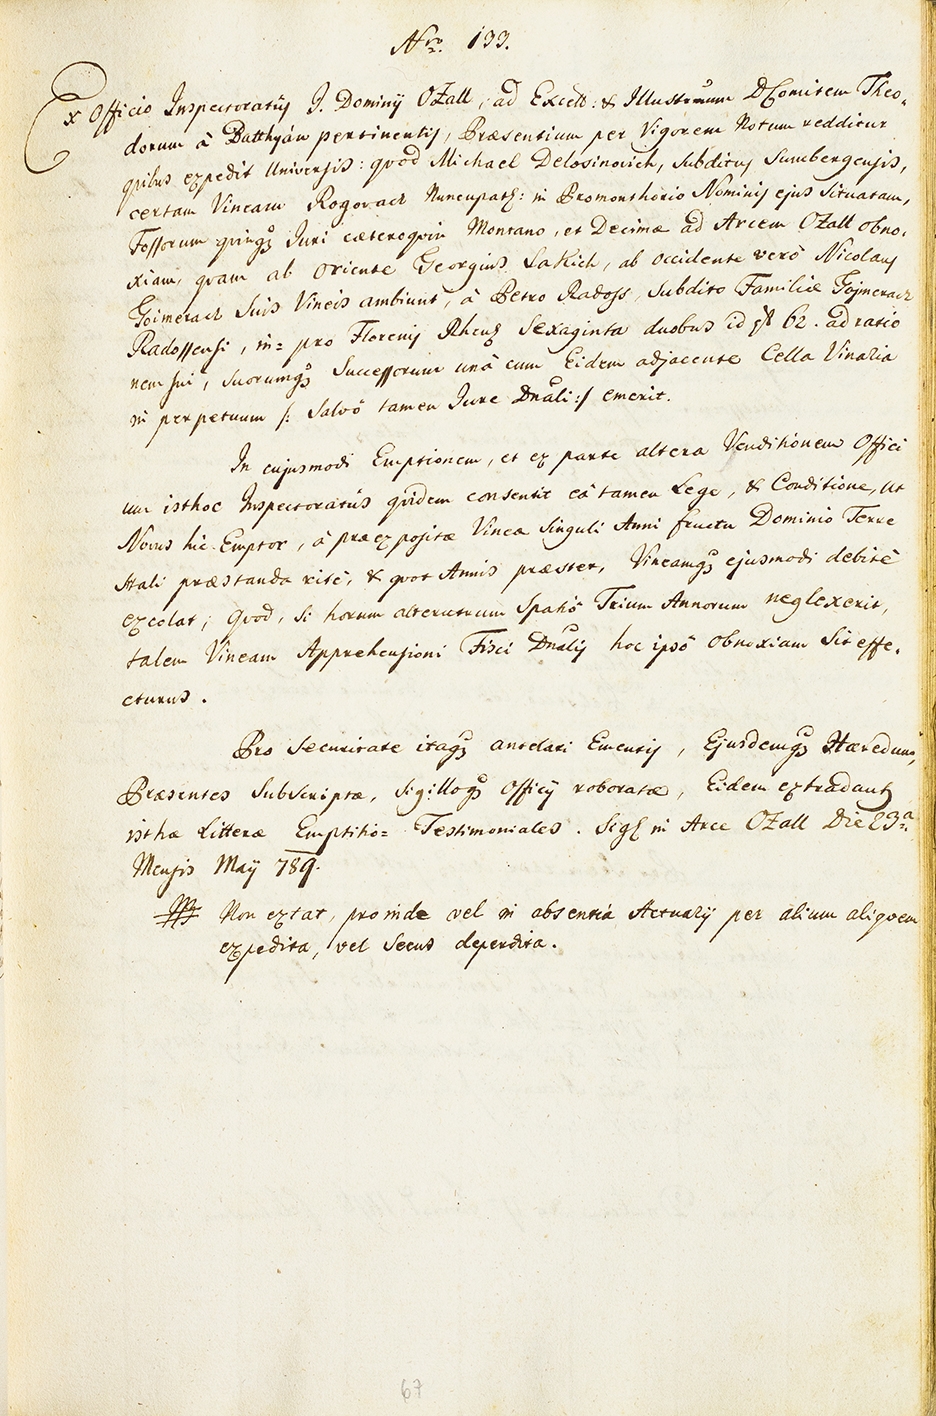 Nro. 133.
Ex Officio Inspectoratûs I. Dominÿ Ozall, ad Excell: & Illustrmum D Comitem Theo-
dorum à Batthyán pertinentis, Præsentium per Vigorem Notum redditur
quibus expedit Universis: quod Michael Delosinovich, Subditus Sumbergensis,
certam Vineam Rogovach Nuncupatam: in Promonthorio Nominis ejus Situatam,
Fossorum quinque Juri cæteroquin Montano, et Decimæ ad Arcem Ozall obno-
xiam, quam ab Oriente Georgius Lakich, ab occidente verò Nicolaus
Goimerach Suis Vineis ambiunt, à Petro Radoss, Subdito Familiæ Gojmerach
Radossensi, in= pro Florenis Rhens Sexaginta duobus id est 62. ad ratio
nem sui, suorumque Successorum unà cum Eidem adjacente Cella Vinaria
in perpetuum /: Salvô tamen Jure Dnali :/ emerit.
In cujusmodi Emptionem, et ex parte altera Venditionem Offici
um isthoc Inspectoratûs quidem consentit eâ tamen Lege, & Conditione, ut
Novus hic Emptor, à præexposita Vinea Singuli Anni fructu Dominio Terre
stali præstanda ritè, & quot Annis præstet, Vineamque ejusmodi debitè
excolat; Quod, si horum alterutrum Spatiô Trium Annorum neglexerit,
talem Vineam Apprehensioni Fisci Dnalis hoc ipsô obnoxiam Sit effe-
cturus.
Pro Securitate itaque antelati Emptoris, Ejusdemque Hæredum,
Præsentes Subscriptæ, Sigilloque Officÿ roboratæ, Eidem extradantur
isthæ Litteræ Emptitio= Testimoniales. Sigl in Arce Ozall Die 23a
Mensis Maÿ 789.
Non extat, proinde vel in absentia Actuarÿ per alium aliquem
expedita, vel Secus deperdita.
67